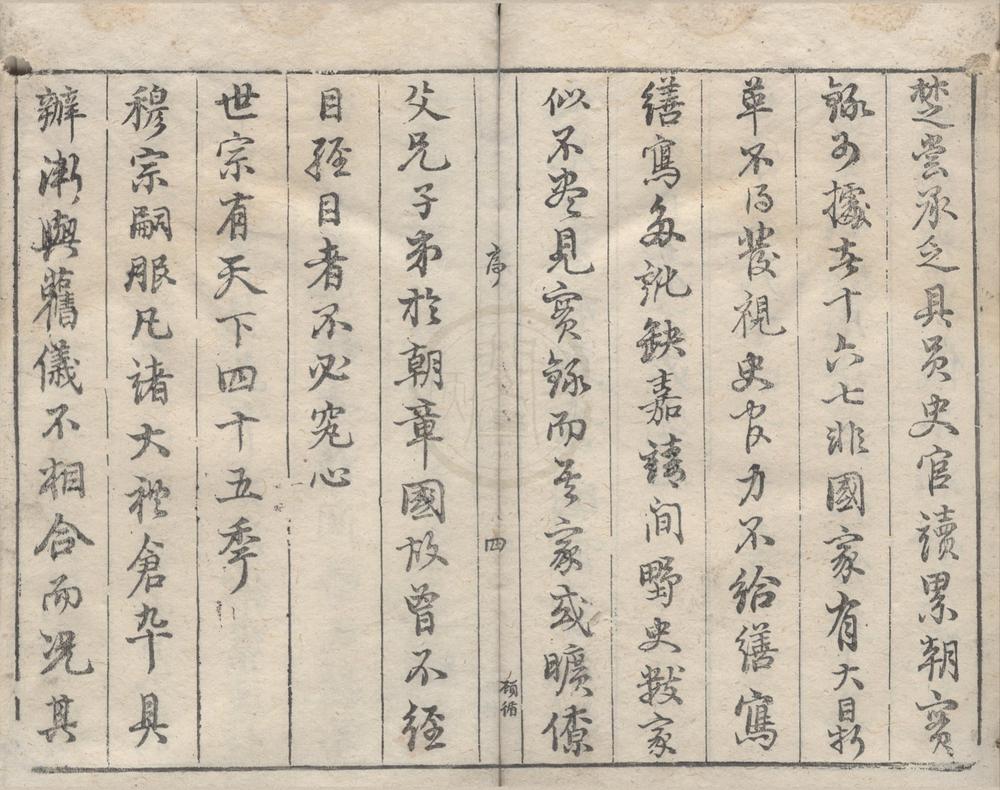 楚嘗承乏具員史官讀累朝實
錄可據者十六七非國家有大因
革不得發視史官力不給繕寫
繕寫多訛缺嘉靖間野史數家
似不盡見實錄而其家或曠僚
序
四
父兄子弟於朝章國故曾不經
目經目者不必究心
世宗有天下四十五季
穆宗嗣服凡諸大禮倉卒具
辦漸與舊儀不相合而況其